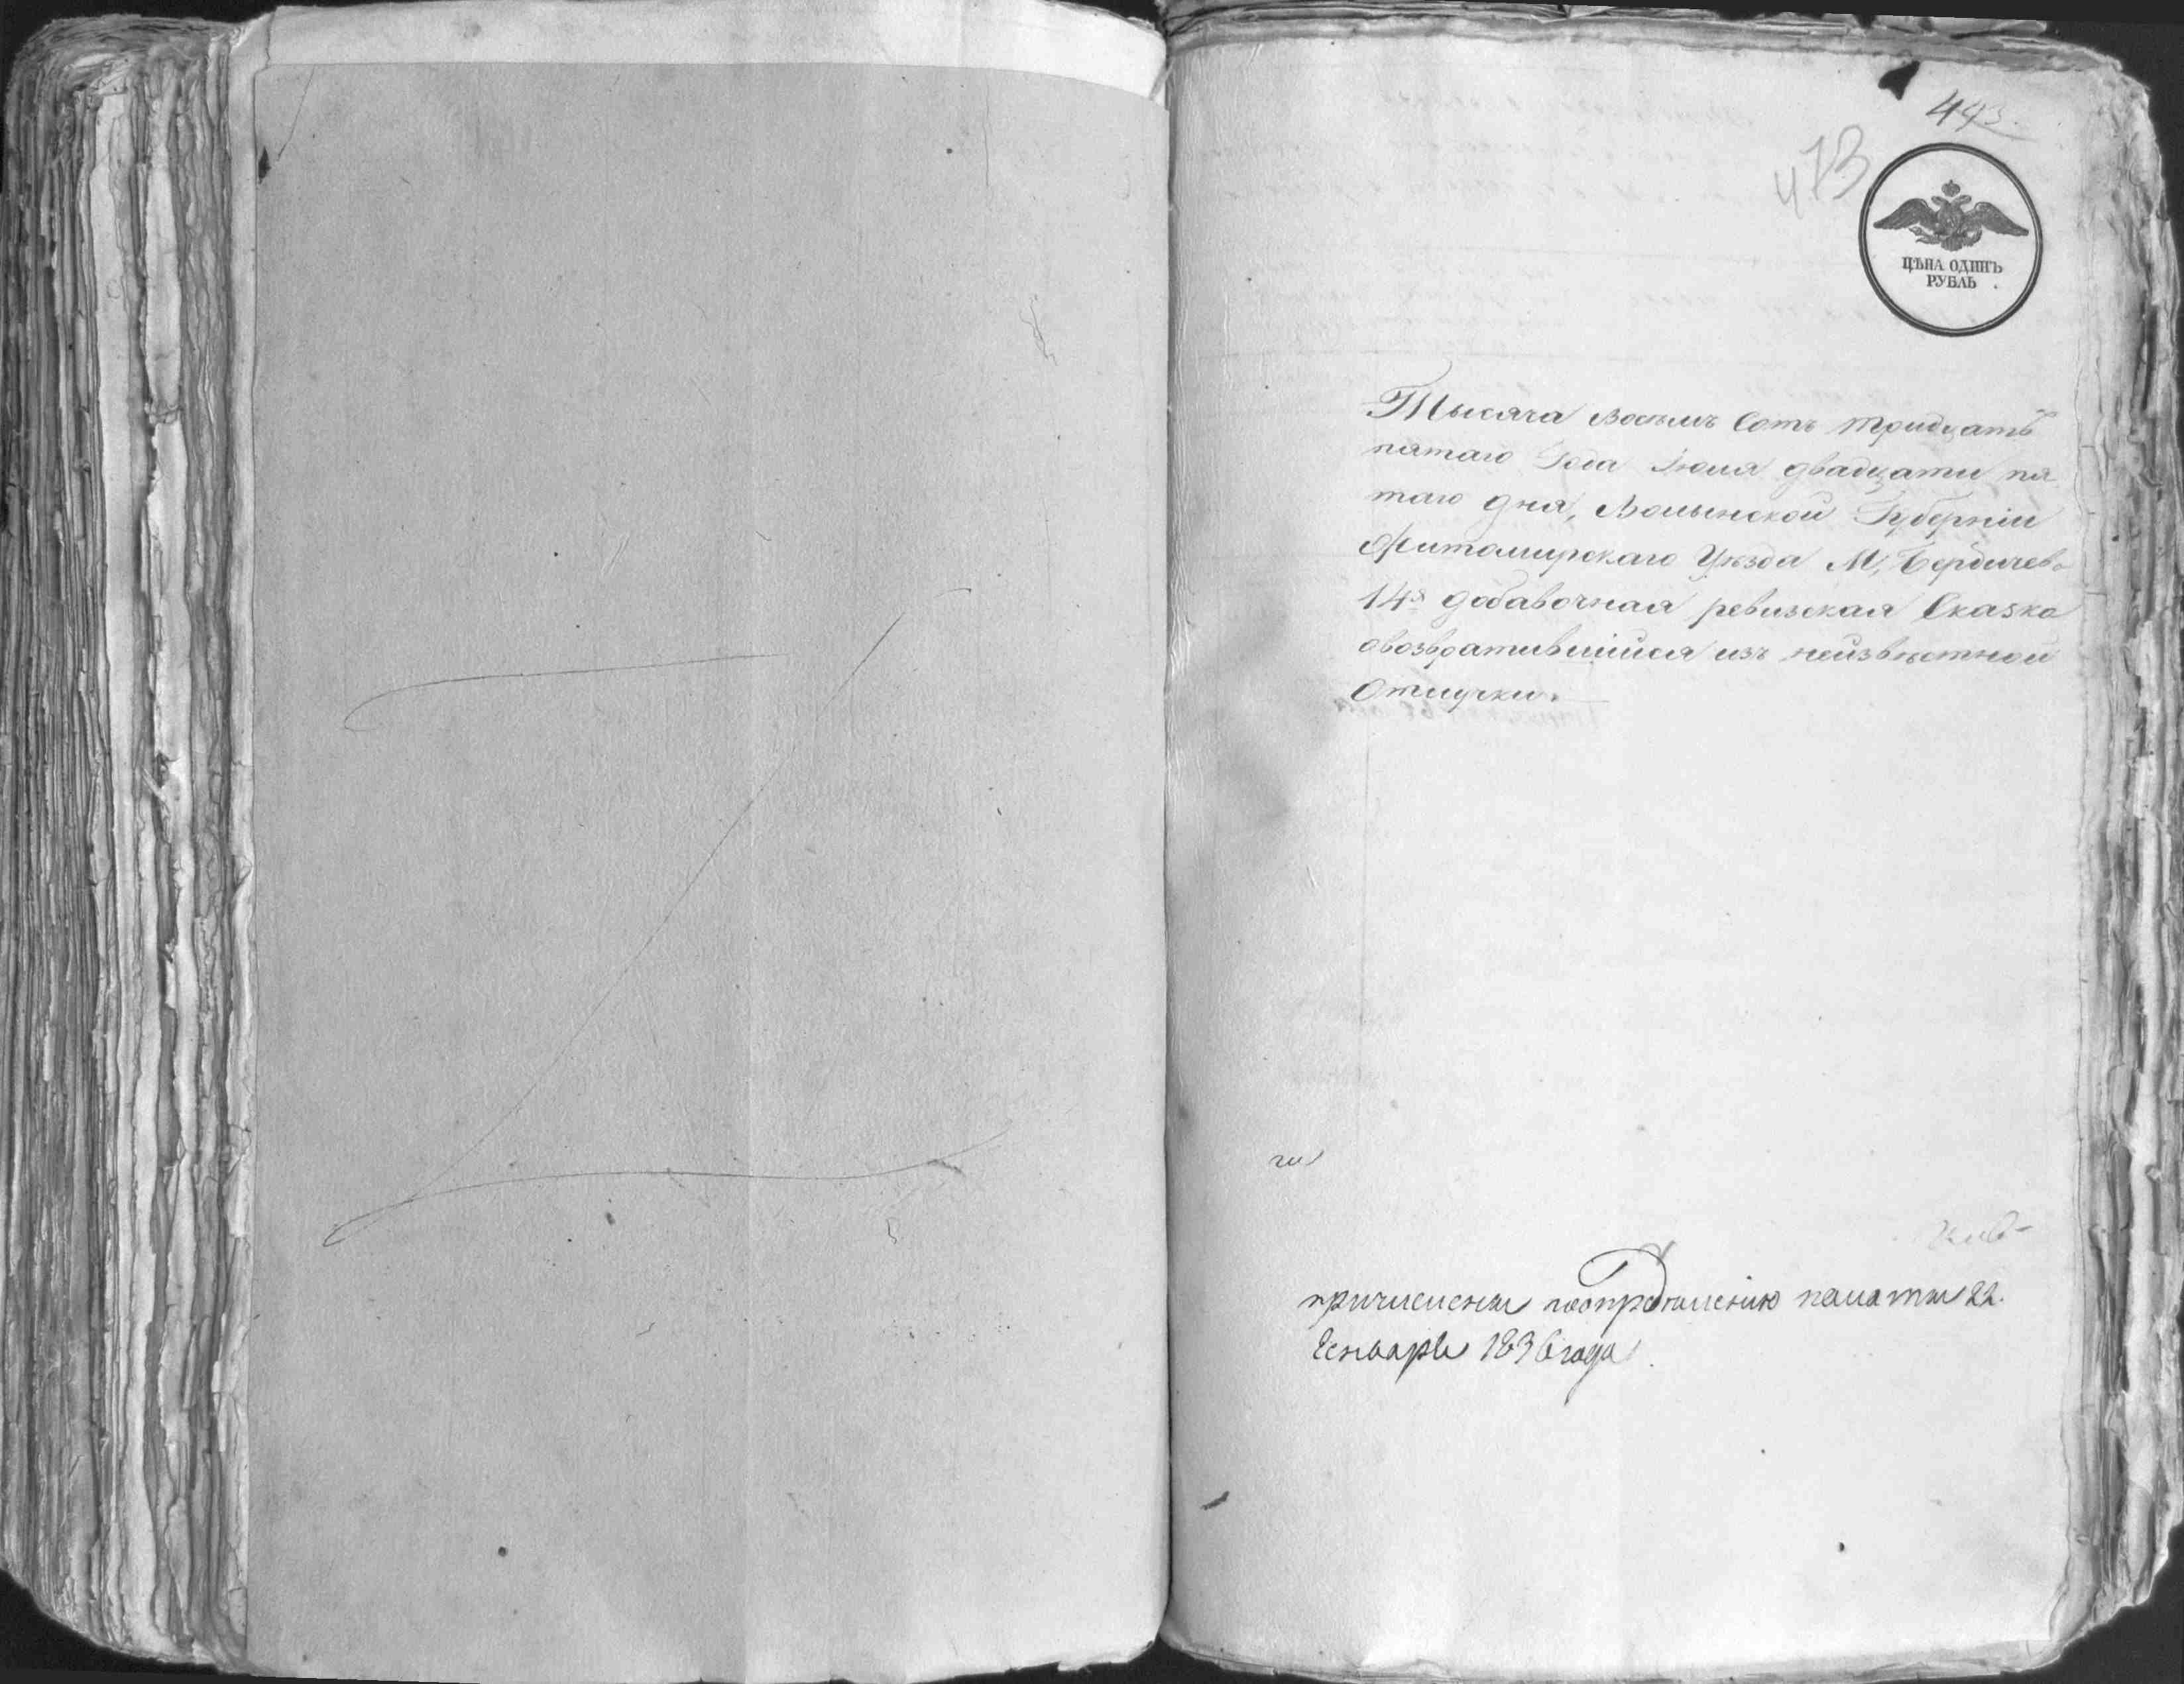 493.
473
ЦѢНА ОДИНЪ
РУБЛЬ
Тысяча Восѣмъ Сотъ тридцать
пятаго Года Іюля двадцати пя
таго дня, Волынской Губерніи
Житомирскаго Уѣзда М, Бердичева
14я добавочная ревизская Сказка
овозвратившійся изъ неизвѣстной
Отлучки.
причислены поопредѣленію палаты 22.
Генваря 1836 года